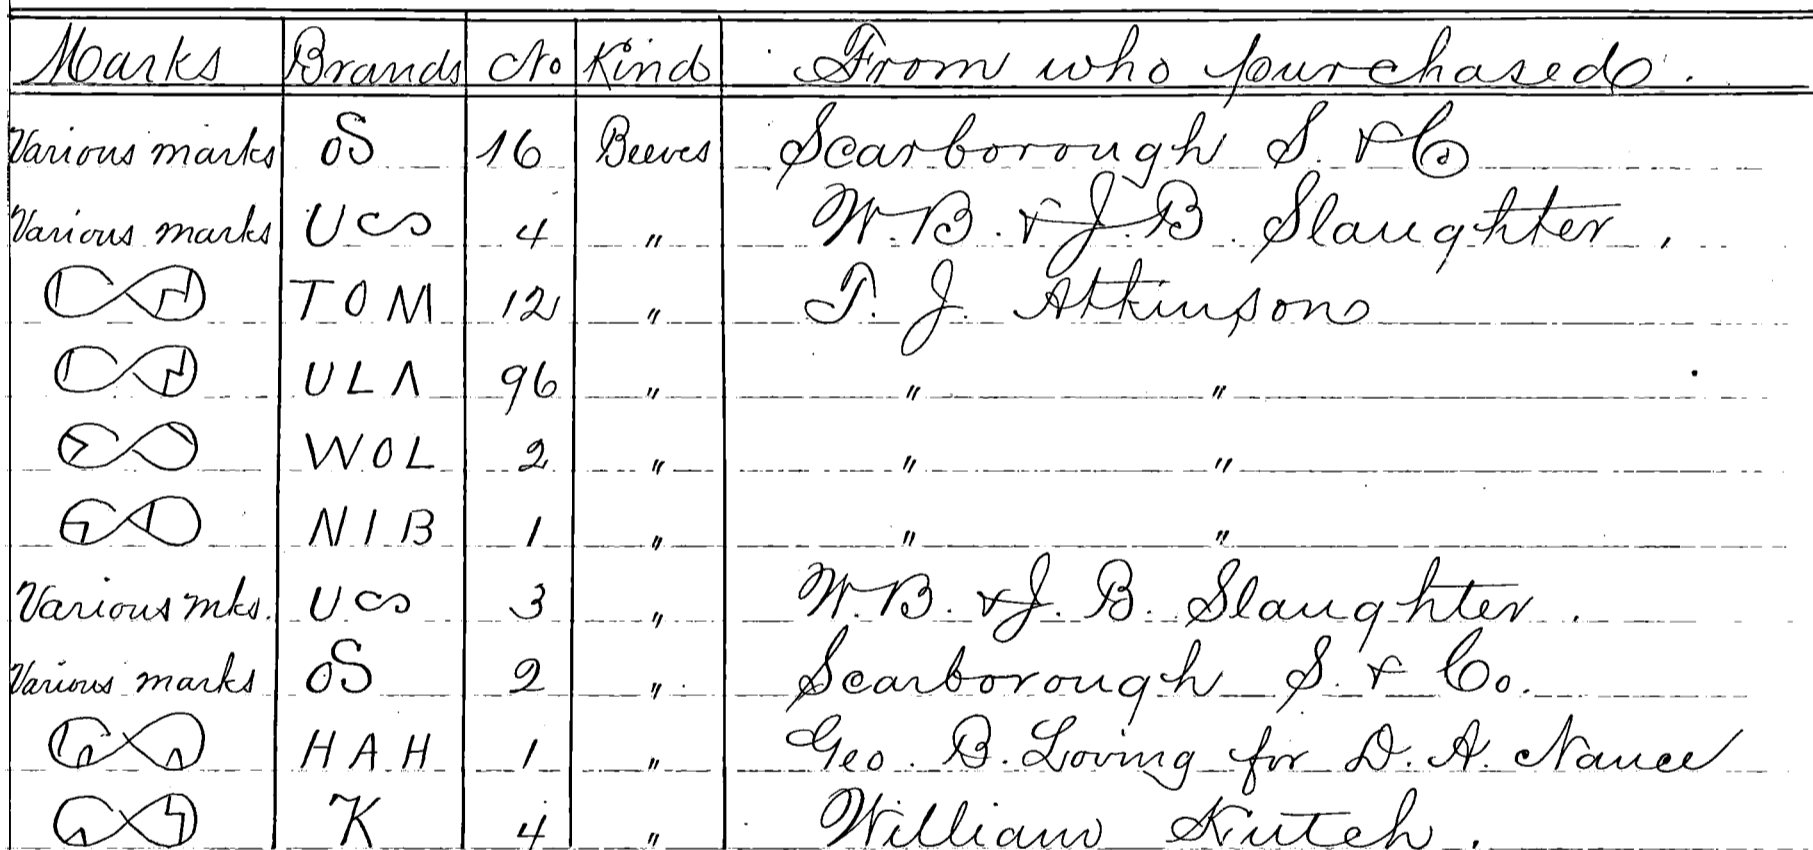 Marks Brands No Kind From who purchased.
Various marks oS 16 Beeves Scarborough S. & Co
Various marks U 4 " W. B. & J. B. Slaughter.
TOM 12 " T. J. Atkinson
ULA 96 " " "
WOL 2 " " "
NIB 1 " " "
Various mks. U 3 " W. B. & J. B. Slaughter.
Various marks oS 2 " Scarborough S. & Co.
HAH 1 " Geo. B. Loving for D. A. Nance
K 4 " William Kutch.